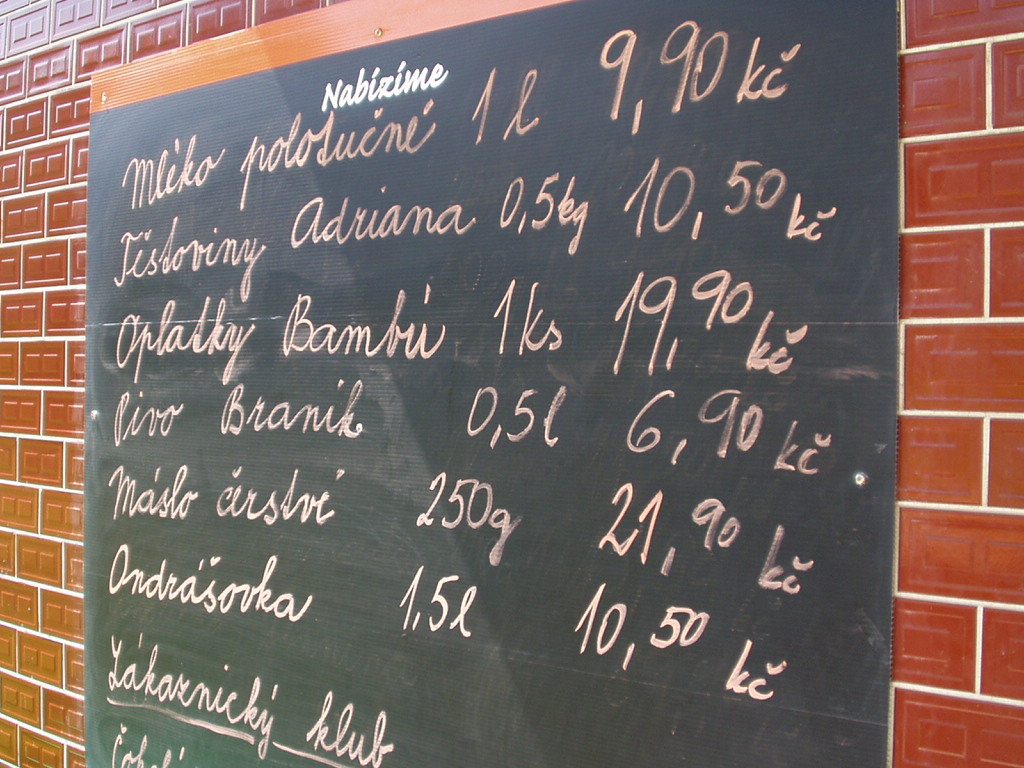 Nabízíme
Mléko polotučné 1 l 9,90 kč
Těstoviny Adriana 0,5kg 10,50 kč
Oplatky Bambú 1ks 19,90 kč
Pivo Braník 0,5l 6,90 kč
Máslo čerstvé 250g 21,90 kč
Ondrášovka 1,5l 10,50 kč
Zákaznický klub